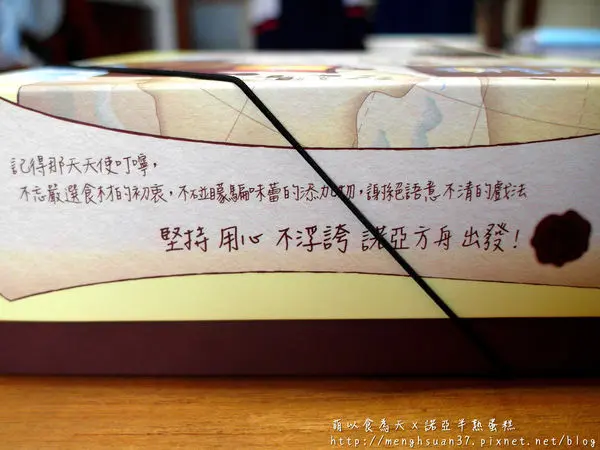 記得那天天使叮嚀，
不忘嚴選食材的初衷，不碰矇騙味蕾的添加物，謝絕語意不清的戲法
堅持 用心 不浮誇 諾亞方舟 出發！
萌以食為天 x 諾亞半熟蛋糕
http://menghsuan37.pixnet.net/blog